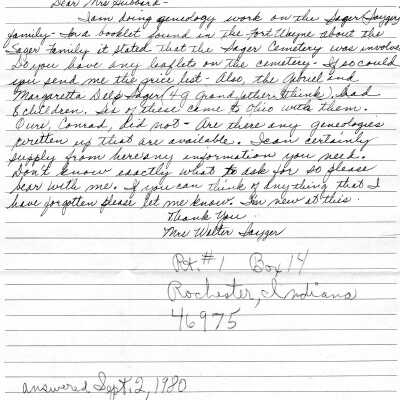 Dear Mrs Hubbard -
I am doing geneology work on the Sager/Sayger
family - In a booklet found in the Fort Wayne about the
Sager Family it stated that the Sager Cemetery was involved
Do you have any leaflets on the cemetery - If so could
you send me the price list - Also, the Gabriel and
Margaretta Delp Sager (4 G Grandfather I think), had
8 children. Six of these came to Ohio with them.
Ours, Conrad, did not - Are there any geneologies
written up that are available. I can certainly
supply from here any information you need.
Don't know exactly what to ask for so please
bear with me. If you can think of anything that I
have forgotten please let me know. I'm new at this.
Thank You
Mrs Walter Sayger
Rt. #1 Box 14
Rochester, Indiana
46975
answered Sept. 2, 1980